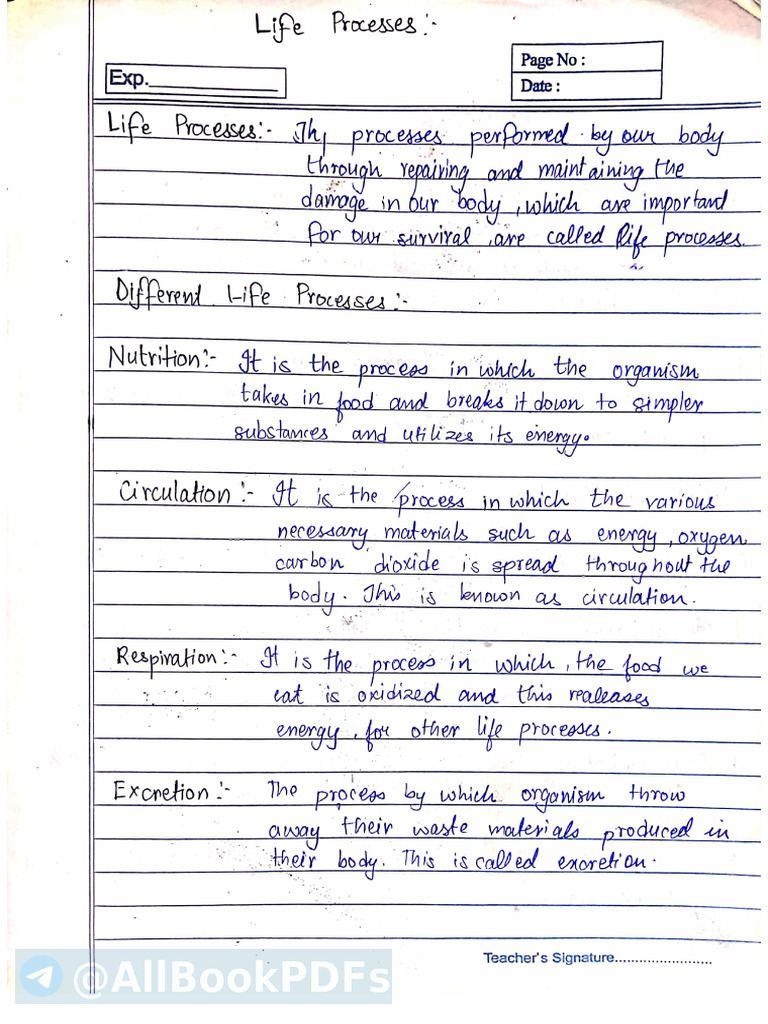 Life Processes:-
Exp.
Page No :
Date :
Life Processes:- The processes performed by our body
through repairing and maintaining the
damage in our body, which are important
for our survival, are called life processes.
Different Life Processes:-
Nutrition:- It is the process in which the organism
takes in food and breaks it down to simpler
substances and utilizes its energy.
Circulation:- It is the process in which the various
necessary materials such as energy, oxygen
carbon dioxide is spread throughout the
body. This is known as circulation.
Respiration:- It is the process in which, the food we
eat is oxidized and this realeases
energy, for other life processes.
Excretion:- The process by which organism throw
away their waste materials produced in
their body. This is called excretion.
Teacher's Signature........................
@AllBookPDFs